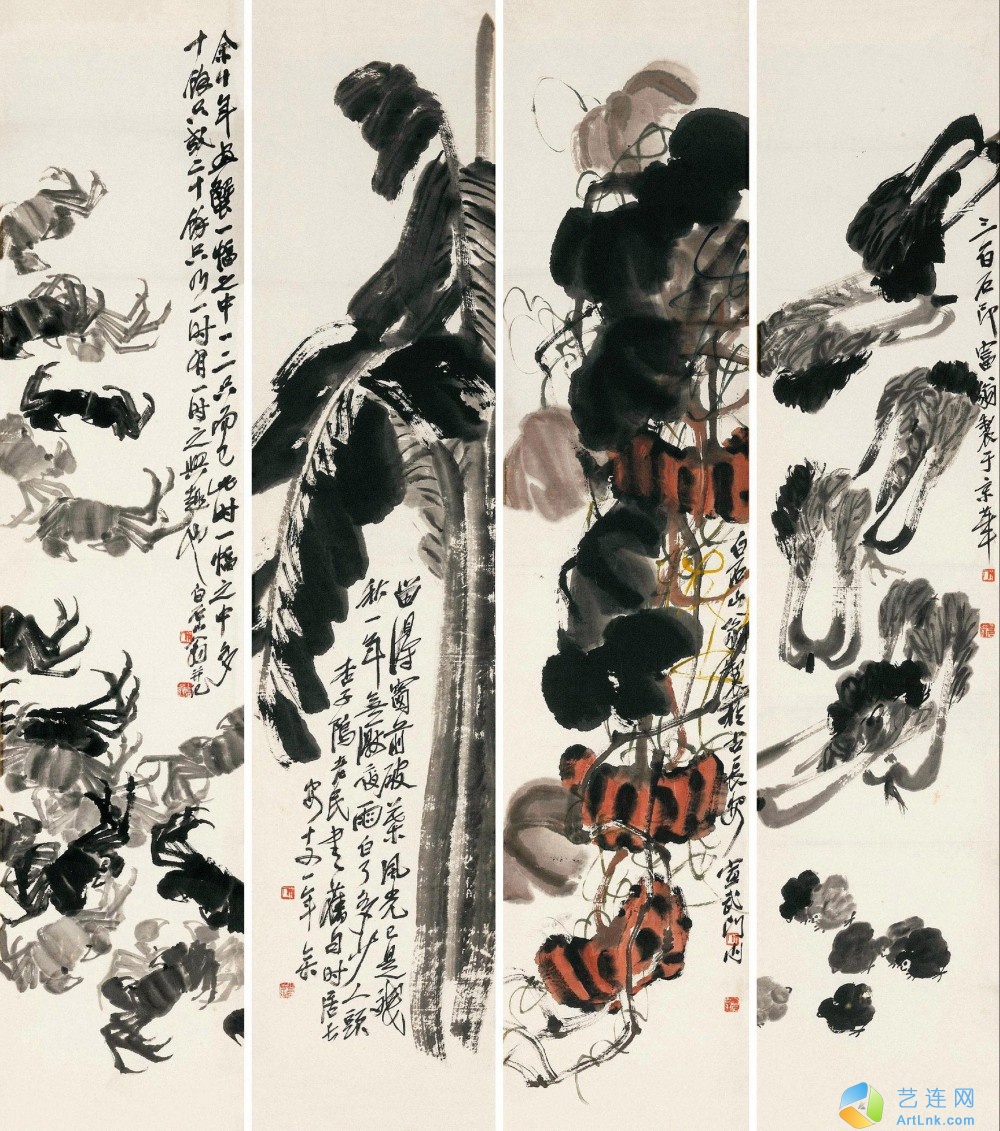 余廿年画蟹一幅之中一二只而已此时一幅之中多
十餘只或二十餘只乃一时有一时之興趣也 白石翁并記
留得窗前破葉風光已是殘
秋一年無厭夜雨白了多少人頭
杏子隖老民書舊句时居長
安十又一年矣
白石山翁製於古長安宣武门内
三百石印富翁製于京華
艺连网
ArtLnk.com